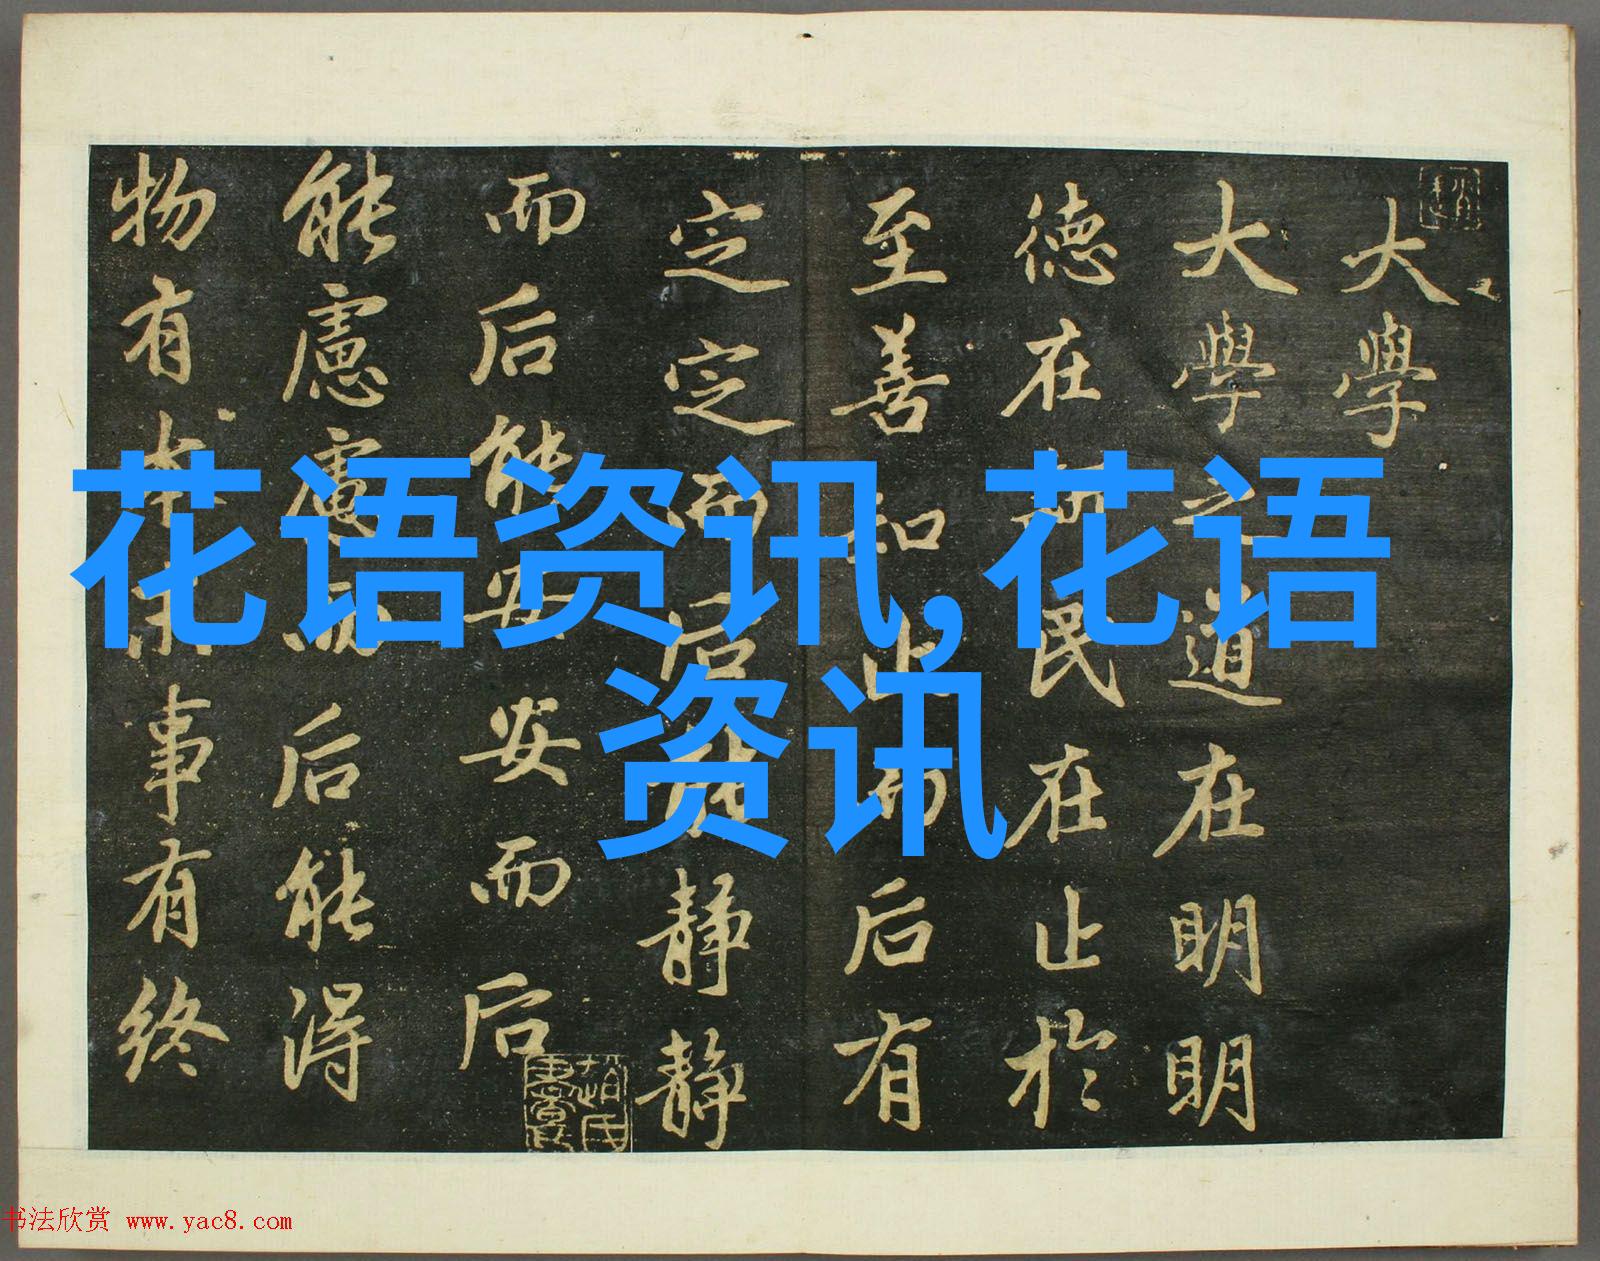 大學
大學之道在明明
德在民在止於
至善知止而后有
定定而后能静静
而后能安安而后
能慮慮而后能得
物有本末事有终
花语资讯,花语
资讯
书法欣赏 www.yac8.com